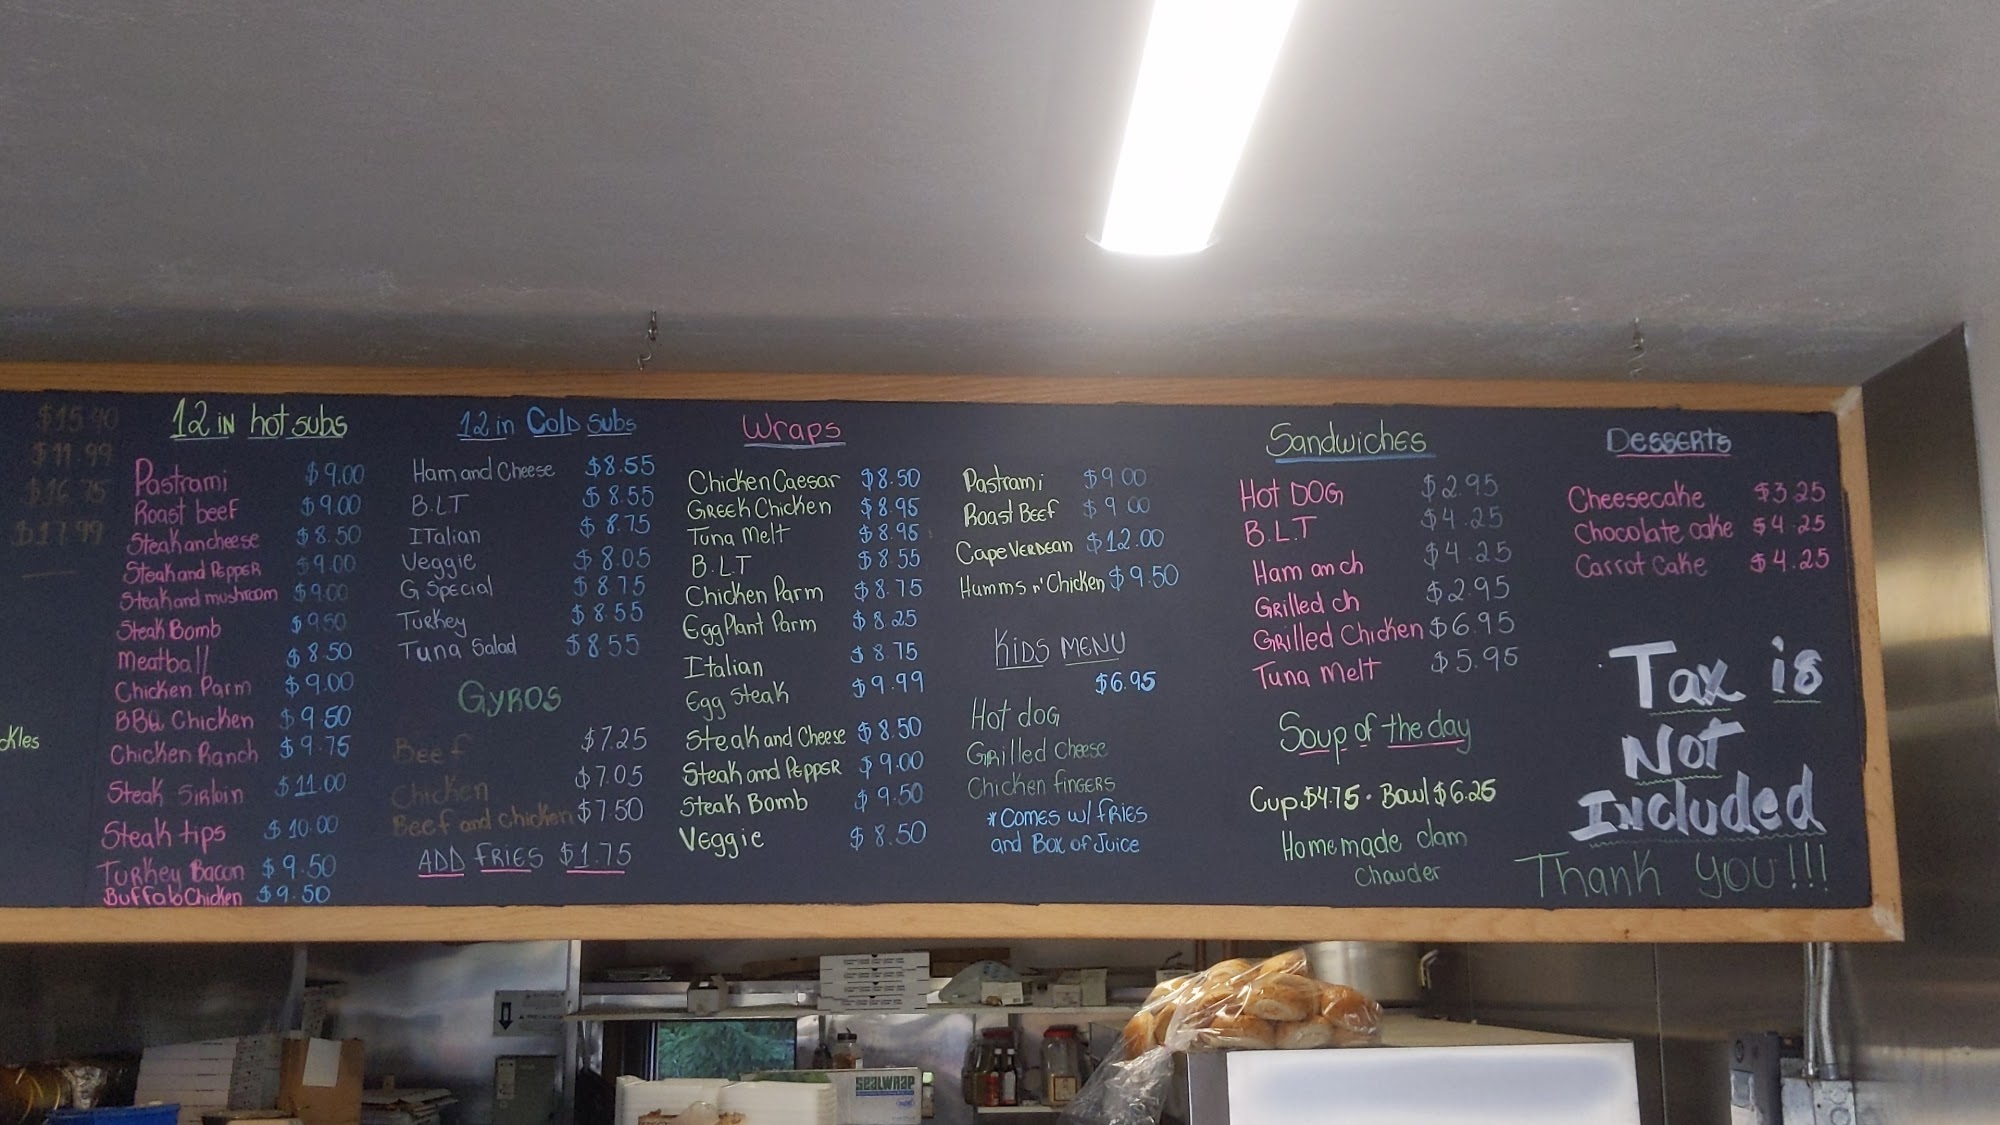 $15.40
$11.99
$16.75
$17.99
ckles
12 IN hot subs
Pastrami $9.00
Roast beef $9.00
Steak an cheese $8.50
Steak and Pepper $9.00
Steak and mushroom $9.00
Steak Bomb $9.50
Meatball $8.50
Chicken Parm $9.00
BBQ Chicken $9.50
Chicken Ranch $9.75
Steak Sirloin $11.00
Steak tips $10.00
Turkey Bacon $9.50
Buffalo Chicken $9.50
12 in Cold Subs
Ham and Cheese $8.55
B.LT $8.55
ITalian $8.75
Veggie $8.05
G Special $8.75
Turkey $8.55
Tuna Salad $8.55
Gyros
Beef $7.25
Chicken $7.05
Beef and chicken $7.50
ADD FRIES $1.75
Wraps
Chicken Caesar $8.50
Greek Chicken $8.95
Tuna Melt $8.95
B.LT $8.55
Chicken Parm $8.75
EggPlant Parm $8.25
Italian $8.75
Egg Steak $9.99
Steak and Cheese $8.50
Steak and Pepper $9.00
Steak Bomb $9.50
Veggie $8.50
Pastrami $9 00
Roast Beef $9 00
Cape Verdean $12.00
Humms n' Chicken $9.50
Kids MENU
$6.95
Hot dog
Grilled Cheese
Chicken fingers
*Comes w/ fries
and Box of Juice
Sandwiches
Hot DOG $2.95
B.L.T $4.25
Ham an ch $4.25
Grilled ch $2.95
Grilled Chicken $6.95
Tuna Melt $5.95
Soup of the day
Cup $4.75 · Bowl $6.25
Homemade clam
Chowder
Desserts
Cheesecake $3.25
Chocolate cake $4.25
Carrot Cake $4.25
Tax is
Not
Included
Thank you!!!
SEALWRAP